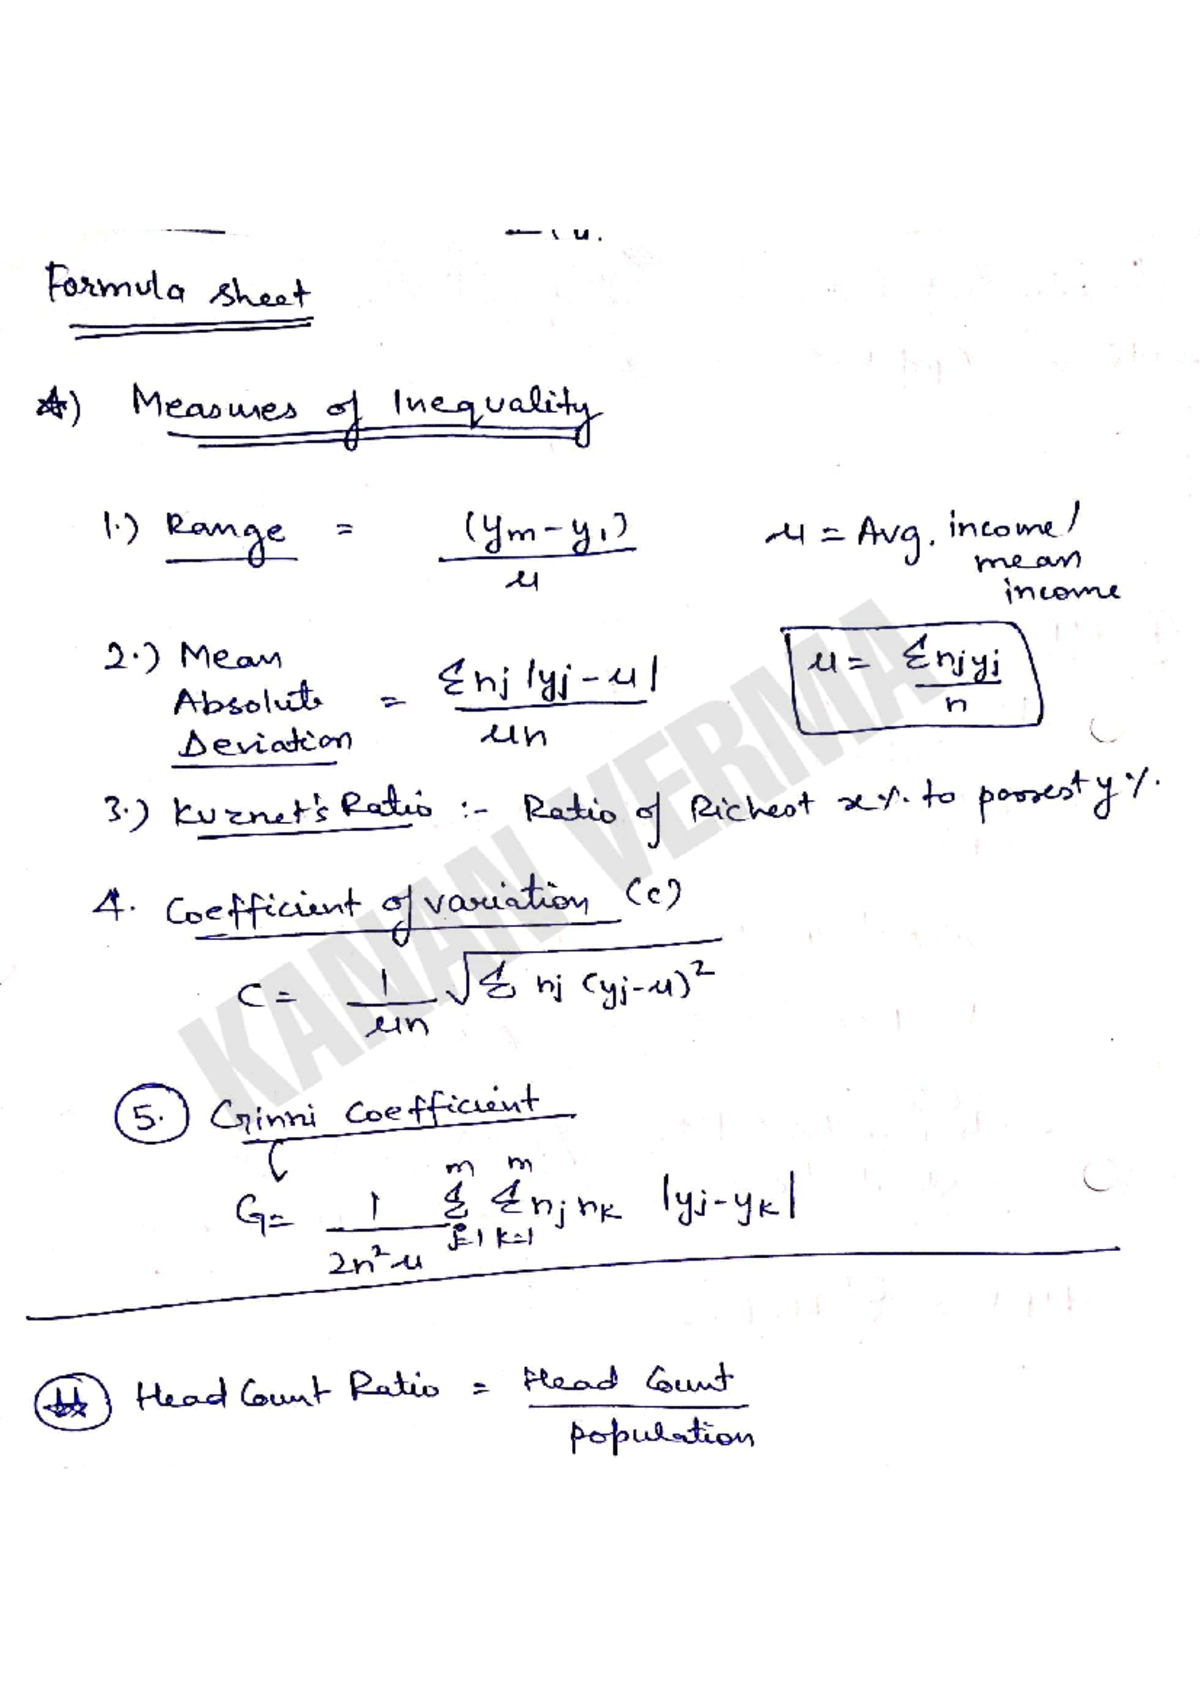 Formula sheet
☆) Measures of Inequality
1.) Range = (ym - y1) / μ
μ = Avg. income /
mean
income
2.) Mean
Absolute
Deviation = Σnj |yj - μ| / μn
μ = Σnjyj / n
3.) Kuznet's Ratio :- Ratio of Richest x% to poorest y%.
4. Coefficient of variation (C)
C = 1/μn √Σ nj (yj-μ)²
5. Ginni Coefficient
G = 1/2n²μ Σ(j=1 to m) Σ(k=1 to m) nj nk |yj-yk|
Head Count Ratio = Head Count / population
KANAN VERMA